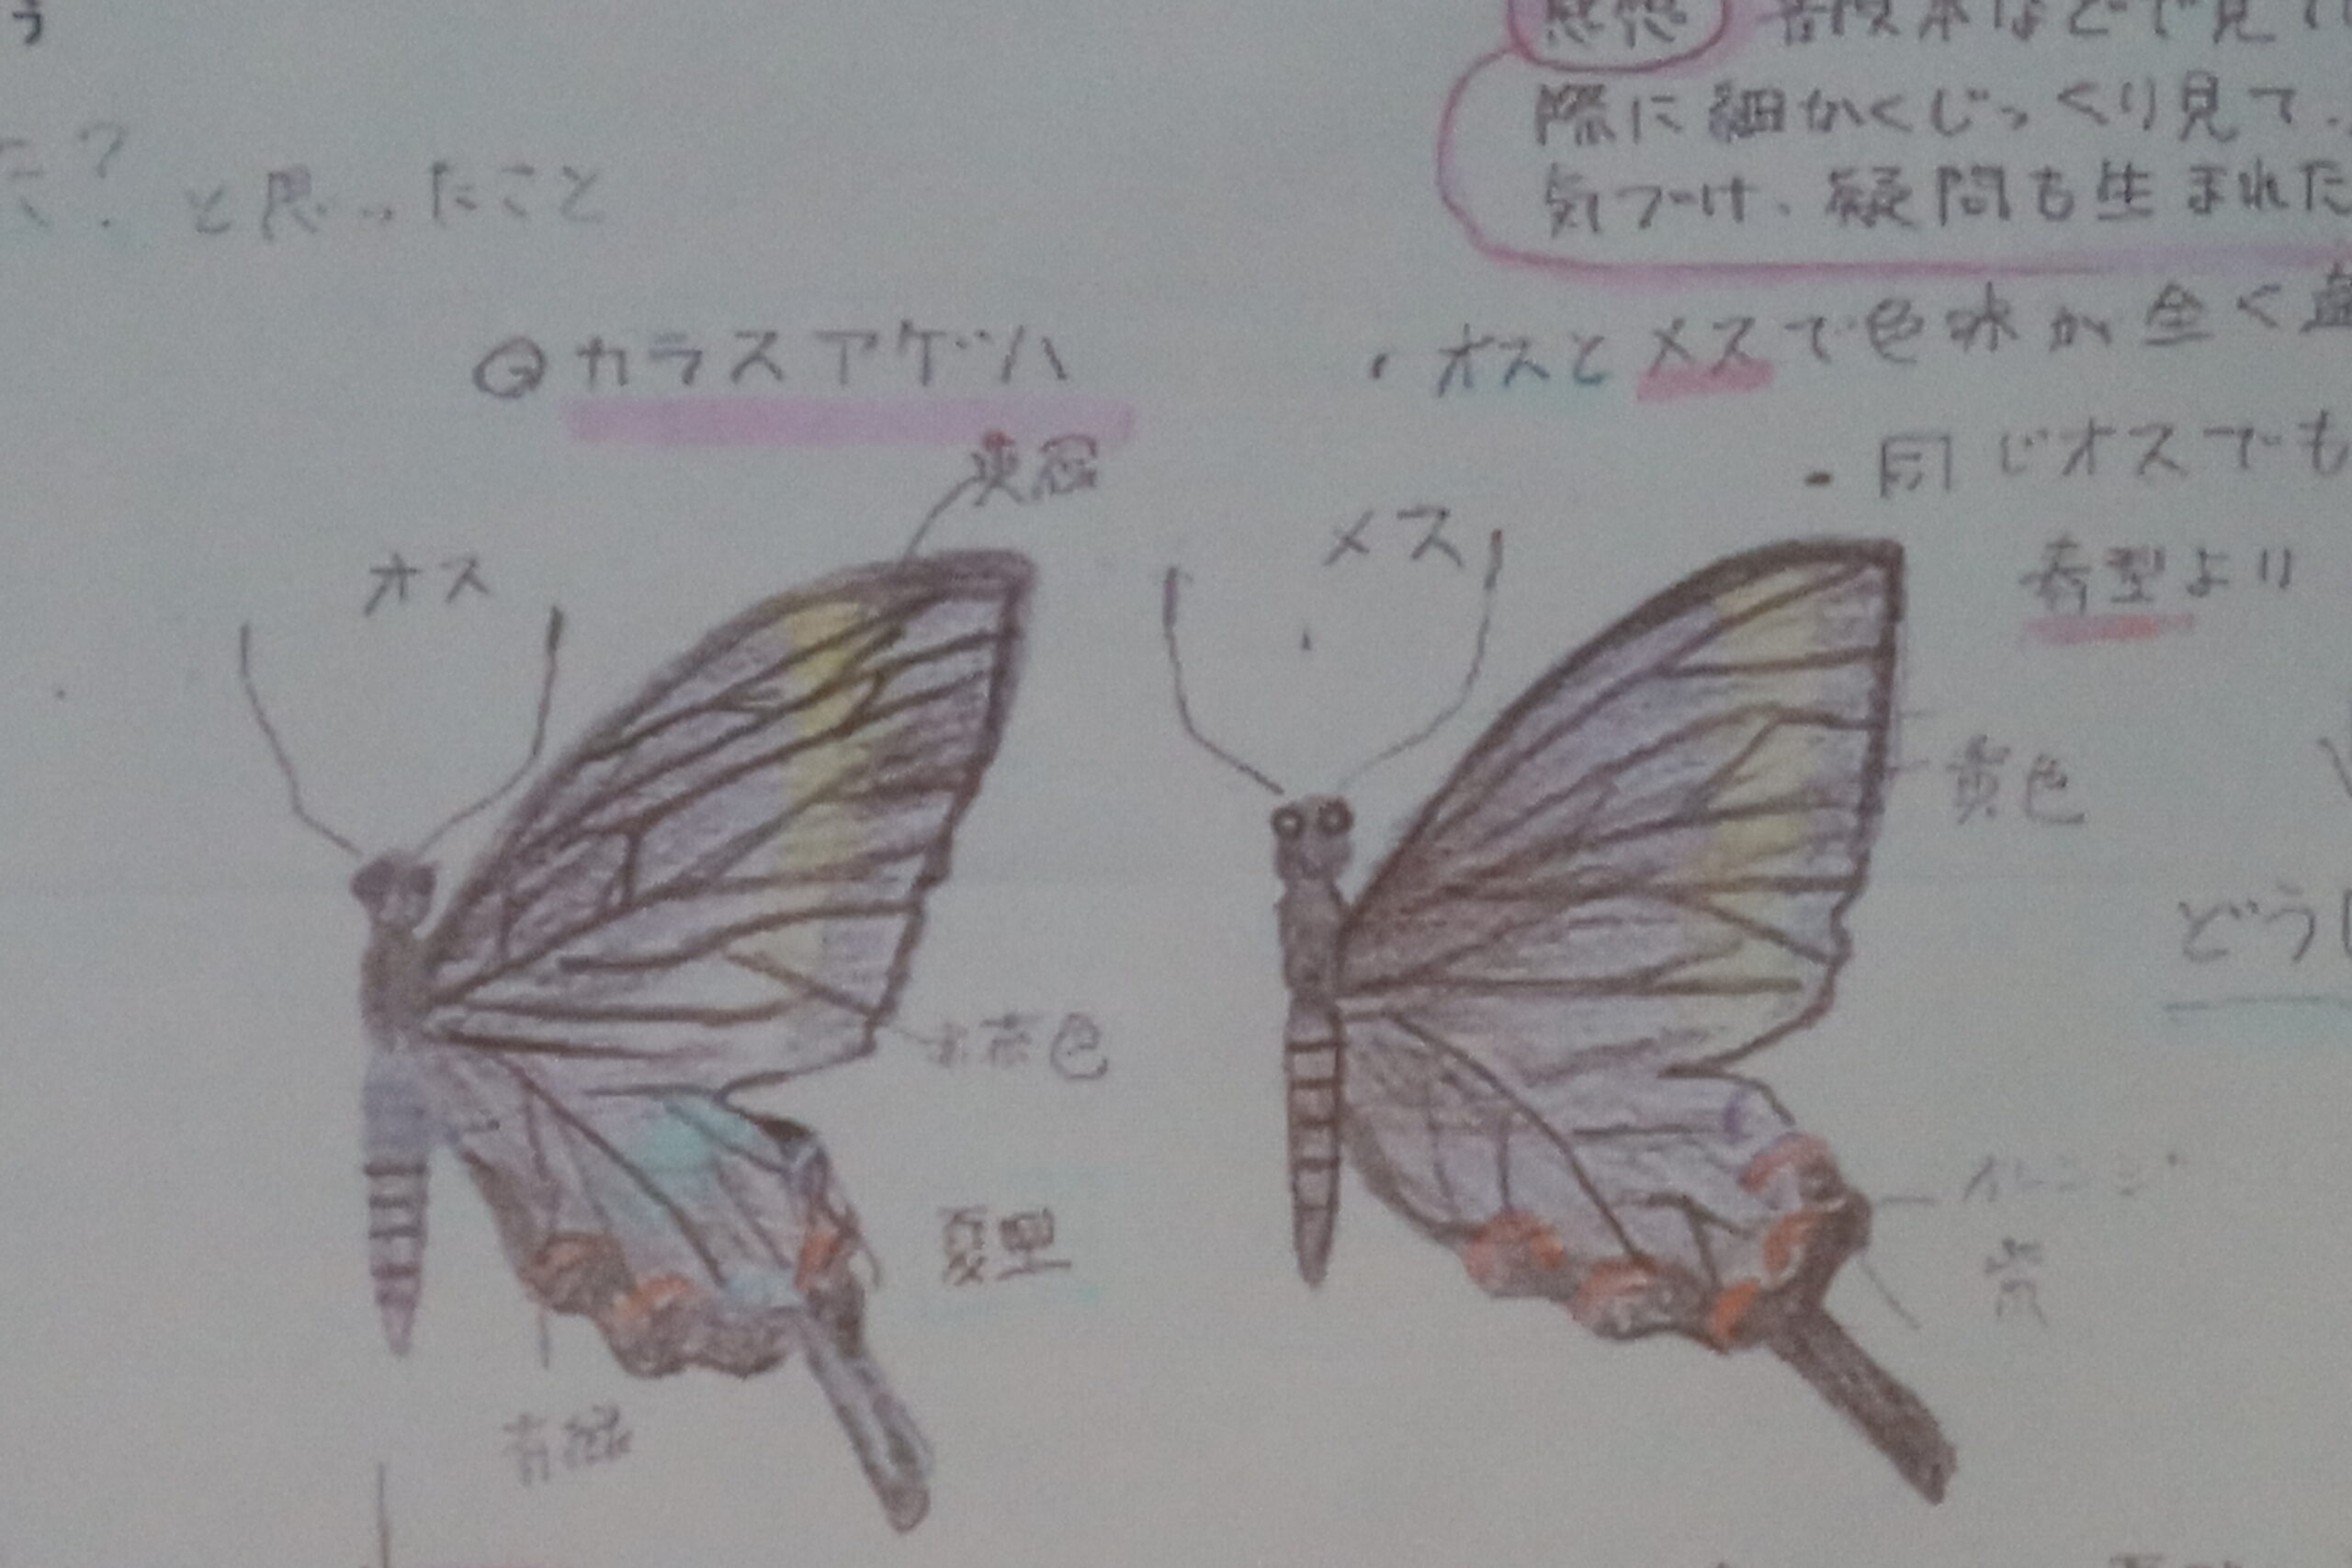 う
た? と思ったこと
感想 普段本などで見て
際に細かくじっくり見て、
気づけ、疑問も生まれた
カラスアゲハ
・オスとメスで色味が全く
・同じオスでも
春型より
オス
メス
黄色
赤茶色
夏型
オレンジ
紫
青緑
どうし